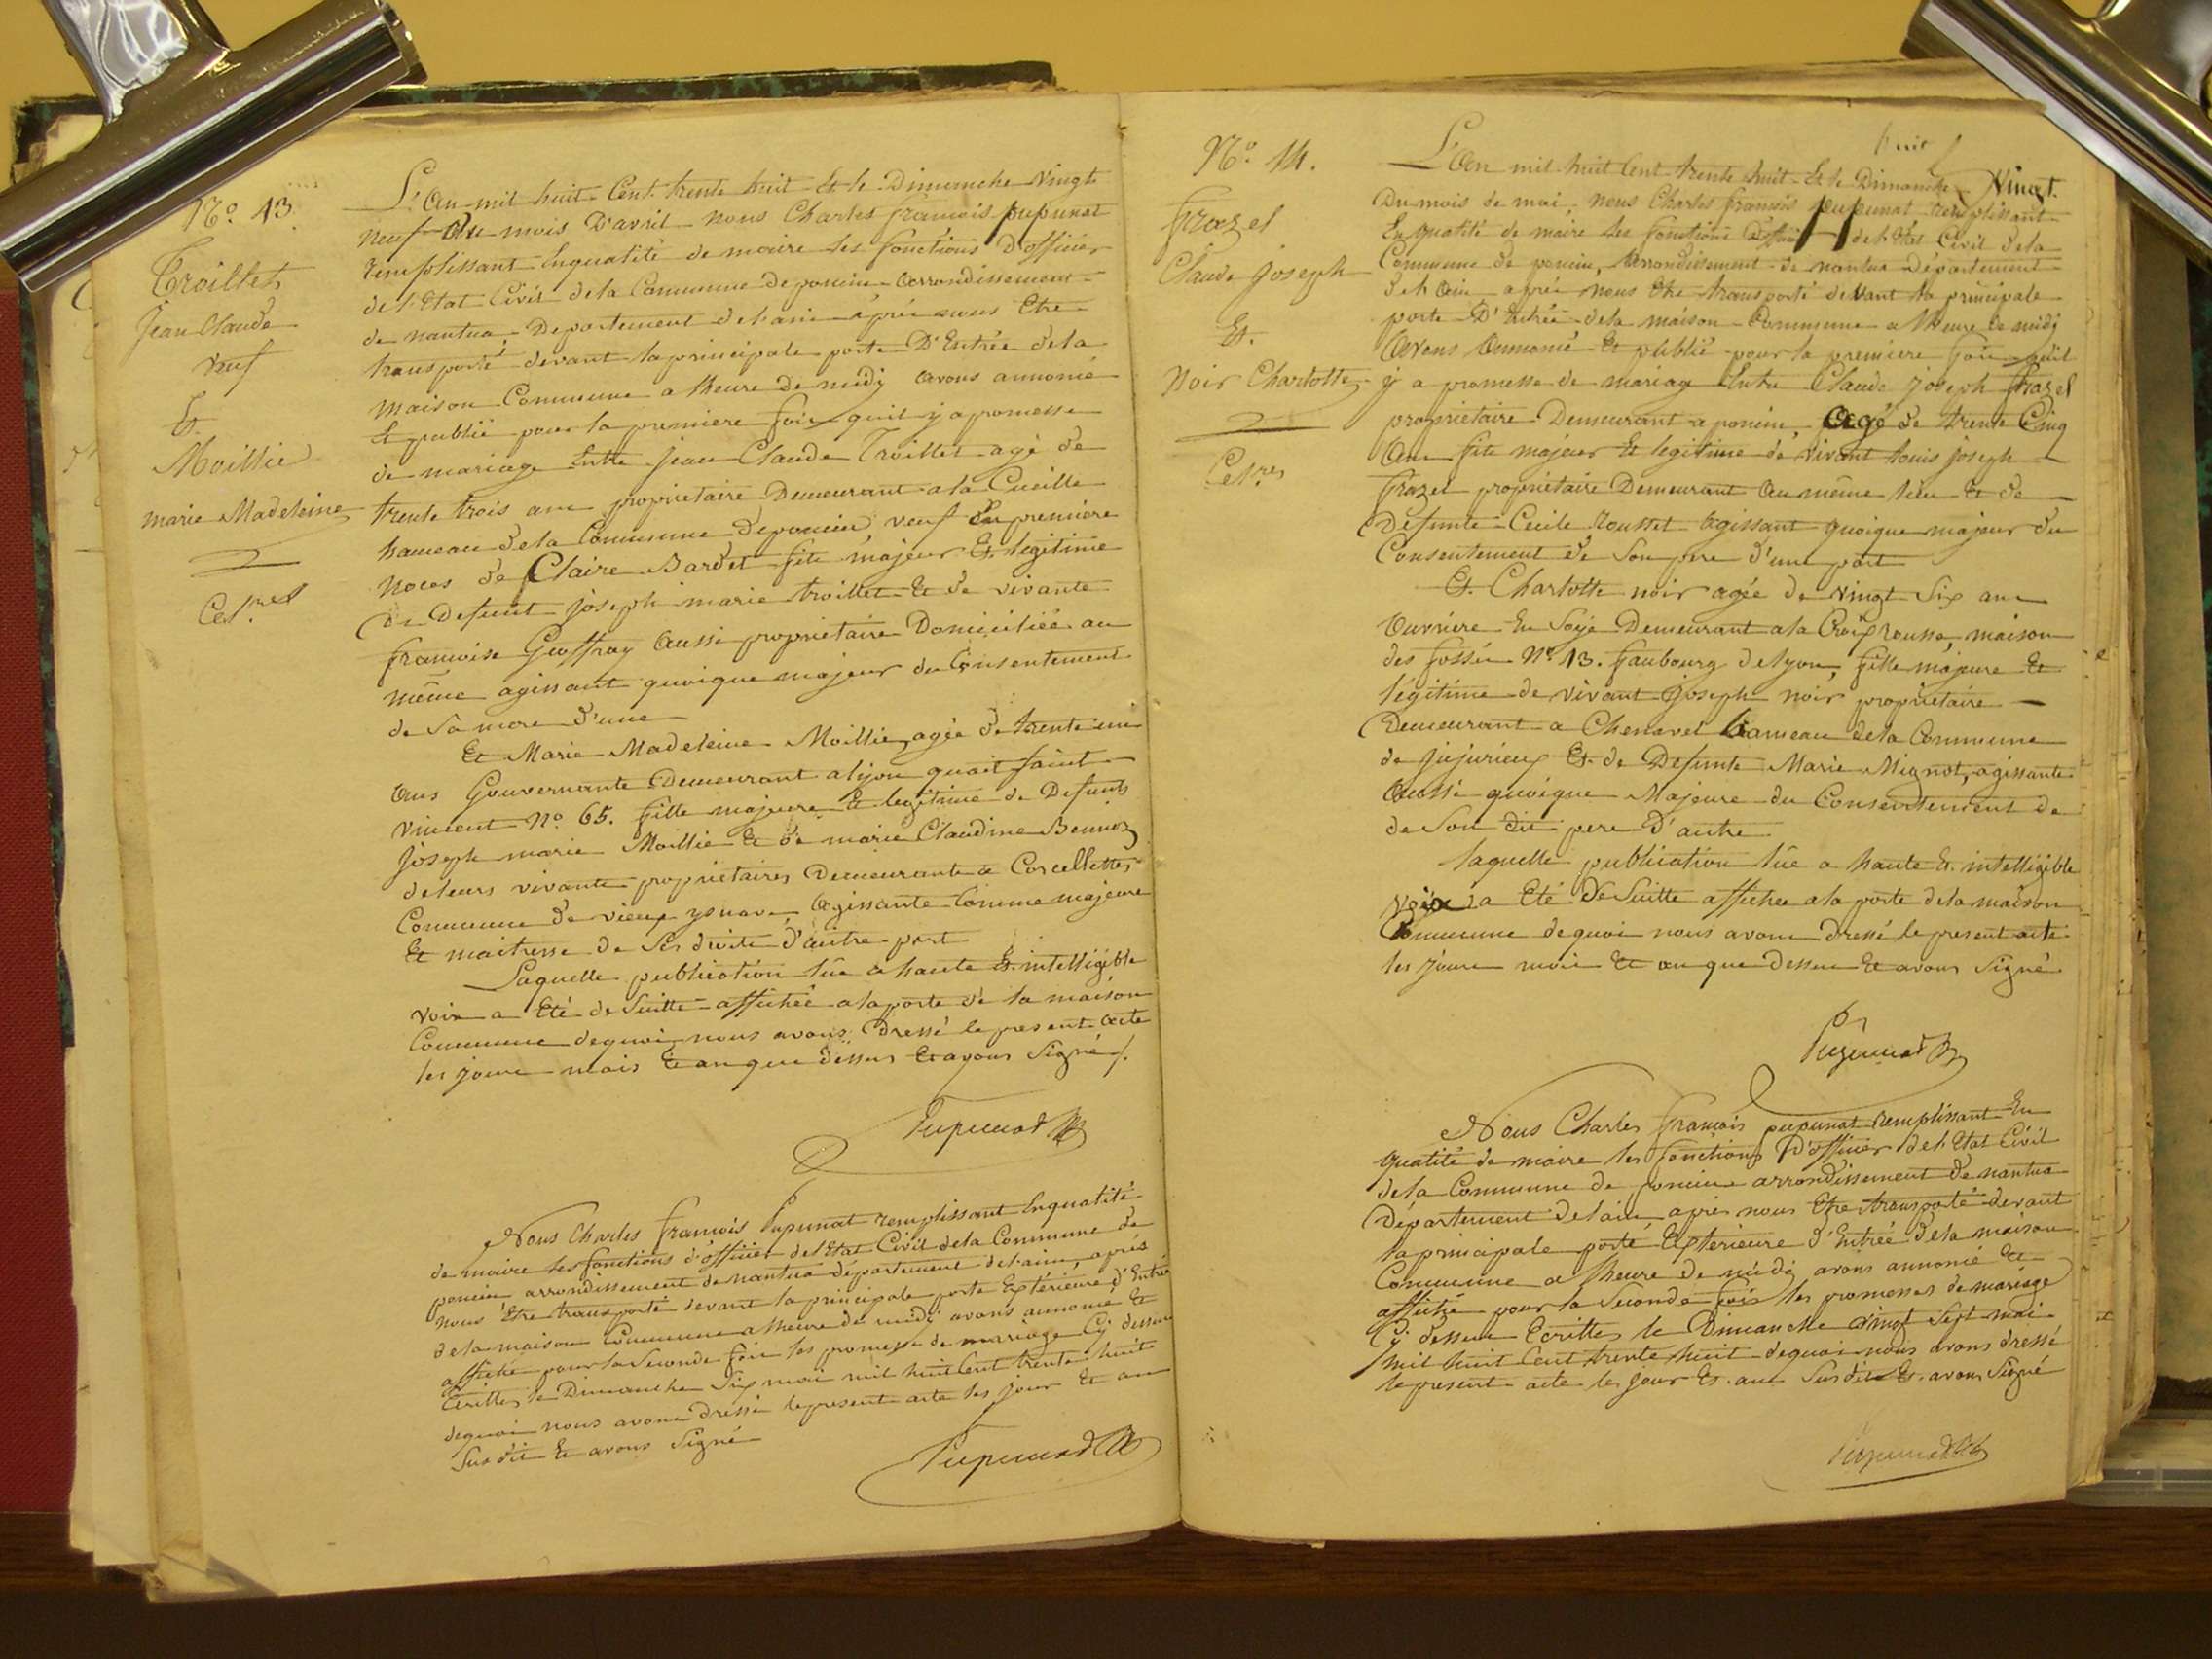 N.o 13.
Troillet
Jean Claude
veuf
Et
Moillie
marie Madeleine
Cel.res
L'an mil huit Cent trente huit Et le Dimanche Vingt
neuf du mois D'avril nous Charles françois pupunat
remplissant Enqualité de maire les fonctions D'officier
del'Etat Civil dela Commune de poncin arrondissement
de nantua, Departement del'ain après nous Etre
transporté devant laprincipale porte D'Entrée dela
maison Commune a l'heure De midy avons annoncé
Et publié pour la premiere fois quil y a promesse
de mariage Entre Jean Claude Troillet agé de
trente trois ans proprietaire Demeurant ala Cueille
hameau dela Commune deponcin, veuf En premiere
noces de Claire Bardet fils majeur Et legitime
De Defunt joseph marie troillet Et de vivante
francoise Geoffray aussi proprietaire Domiciliée au
même agissant quoique majeur du Consentement
de Sa mere d'une
Et Marie Madeleine Moillie, agée de trente un
ans Gouvernante Demeurant a lyon quait saint
Vincent N.o 65. fille majeure Et legitime de Defunts
joseph marie Moillie Et de marie Claudine Bennoz
deleurs vivants proprietaires Demeurants a Corcellettes
Commune de vieux ysnave, agissante Comme majeure
Et maitresse de Ses droits d'autre part
Laquelle publication lûe a haute Et intelligible
voix a Eté de Suitte affichée alaporte de la maison
Commune dequoi nous avons Dressé le present acte
les jour mois Et an que dessus Et avons Signé /.
Pupunat
Nous Charles françois Pupunat remplissant Enqualité
de maire les fonctions d'officier del'Etat Civil dela Commune de
poncin arrondissement de nantua département del'ain, après
nous Etre transporté devant la principale porte Extérieure d'Entrée
dela maison Commune a l'heure de midi avons annoncé Et
affiché pour la Seconde fois les promesse de mariage Cy dessus
Ecrittes le Dimanche Six mai mil huit Cent trente huit
dequoi nous avons dressé lepresent acte les jour Et an
Susdit Et avons Signé
Pupunat
N.o 14.
frazel
Claude joseph
Et
Noir Charlotte
Cel.res
huit
L'an mil huit Cent trente huit Et le Dimanche Vingt
Du mois de mai, nous Charles françois pupunat remplissant
En qualité de maire les fonctions d'officier del'Etat Civil dela
Commune de poncin, arrondissement de nantua Département
del'ain après nous Etre transporté devant la principale
porte D'Entrée dela maison Commune a l'heure de midy
avons annoncé Et publié pour la premiere fois quil
y a promesse de mariage Entre Claude joseph frazel
proprietaire Demeurant a poncin, agé de trente Cinq
ans fils majeur Et legitime de vivant louis joseph
frazel proprietaire Demeurant au même lieu Et de
Defunte Cecile rousset agissant quoique majeur du
Consentement de Son pere d'une part
Et Charlotte noir agée de vingt Six ans
Ouvriere En Soye Demeurant ala Croix rousse, maison
des fossés N.o 13. faubourg delyon, fille majeure Et
légitime de vivant joseph noir proprietaire
Demeurant a Chenavel hameau dela Commune
de jujurieux Et de Defunte Marie Mignot, agissante
aussi quoique Majeure du Consentement de
de Son dit pere D'autre
laquelle publication lûe a haute Et intelligible
voix a Eté De Suitte affichée ala porte dela maison
Commune dequoi nous avons dressé le present acte
les jour mois Et an que dessus Et avons Signé
Pupunat
Nous Charles françois pupunat remplissant En
qualité de maire les fonctions D'officier del'Etat Civil
dela Commune de poncin arrondissement de nantua
Département delain, après nous Etre transporté devant
laprincipale porte Extérieure d'Entrée dela maison
Commune a l'heure De midi avons annoncé Et
affiché pour la Seconde fois les promesses de mariage
Cy dessus Ecrittes le Dimanche vingt Sept mai
mil huit Cent trente huit dequoi nous avons dressé
lepresent acte les jour Et an Susdits Et avons Signé
Pupunat